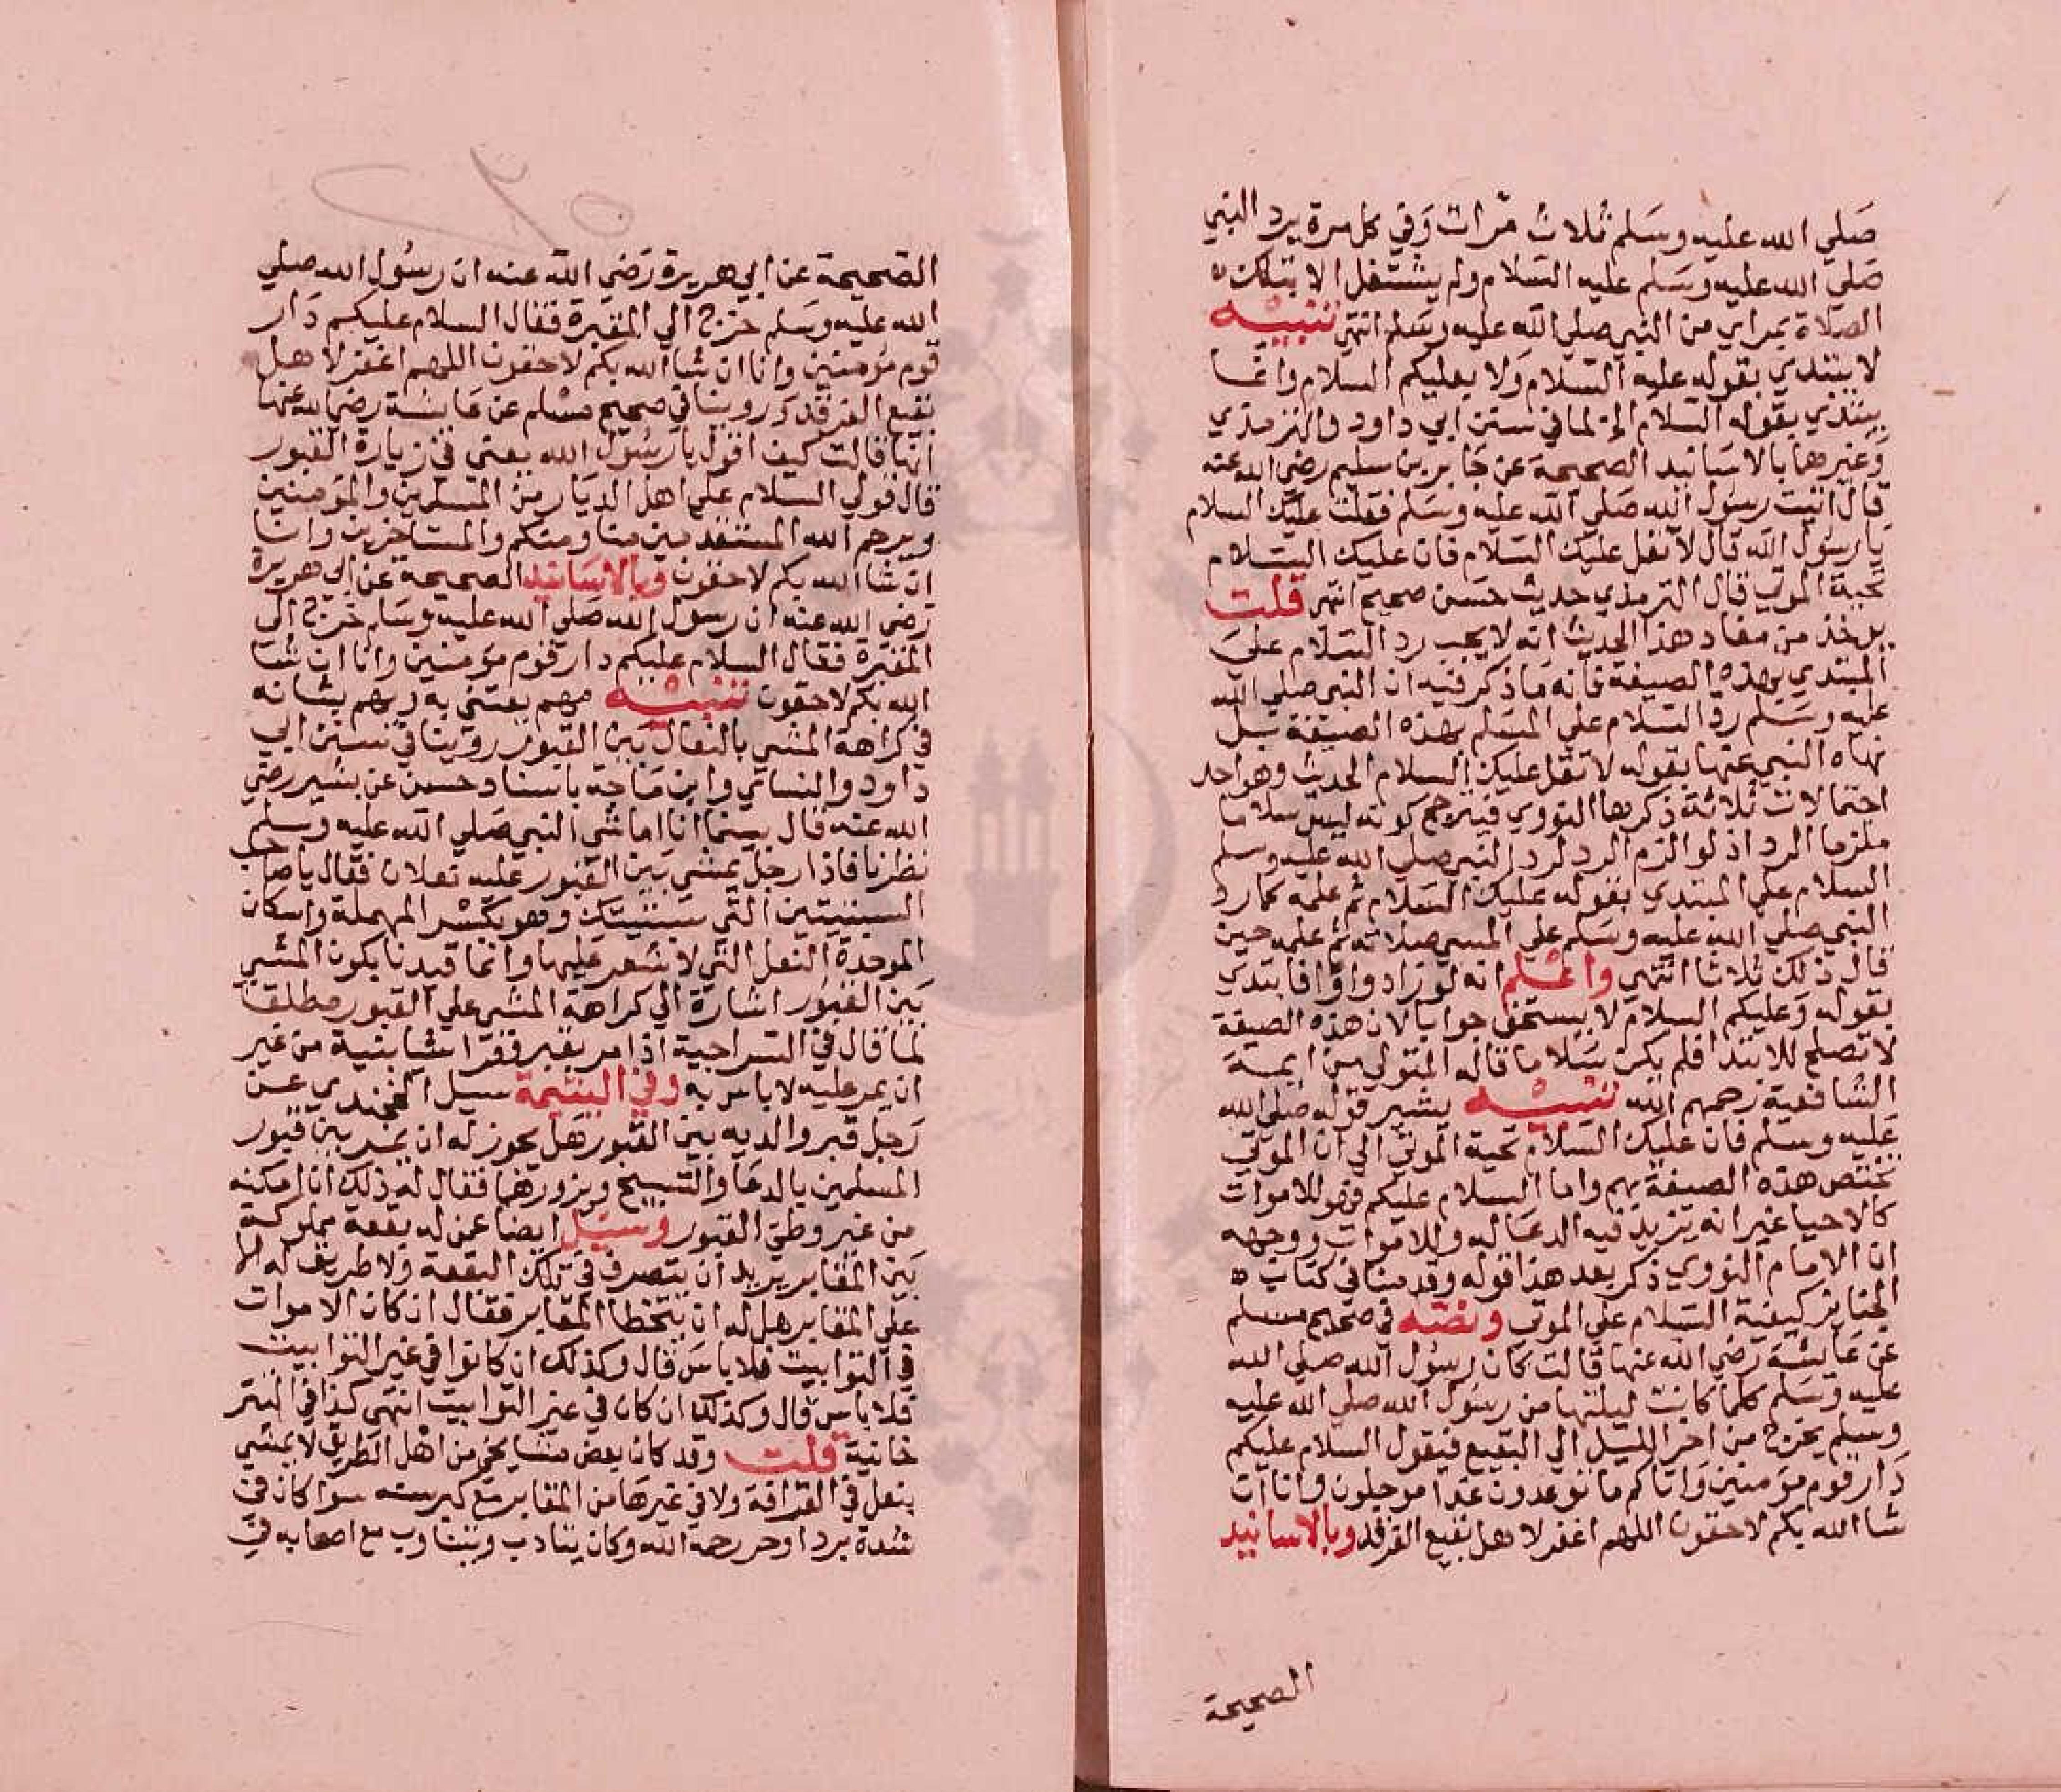 صلي الله عليه وسلم ثلاث مرات وفي كل مرة يرد النبي
صلي الله عليه وسلم عليه السلام ولم يشتغل الا بتلك
الصلاة بمراي من النبي صلي الله عليه وسلم انتهي تنبيه
لا يبتدي بقوله عليه السلام ولا بعليكم السلام وانما
يبتدي بقوله السلام الخ لما في سنن ابي داود والترمذي
وغيرهما بالاسانيد الصحيحة عن جابر بن سليم رضي الله عنه
قال اتيت رسول الله صلي الله عليه وسلم فقلت عليك السلام
يا رسول الله قال لا تقل عليك السلام فان عليك السلام
تحية الموتي قال الترمذي حديث حسن صحيح انتهي قلت
يوخذ من مفاد هذا الحديث انه لا يجب رد السلام علي
المبتدي بهذه الصيغة فانه ما ذكر فيه ان النبي صلي الله
عليه وسلم رد السلام علي المسلم بهذه الصيغة بل
نهاه النبي عنها بقوله لا تقل عليك السلام الحديث وهو احد
احتمالات ثلاثة ذكرها النووي فيترجح كونه ليس سلاما
ملزما الرد اذ لو الزم الرد لرد النبي صلي الله عليه وسلم
السلام علي المبتدي بقوله عليك السلام ثم علمه كما رد
النبي صلي الله عليه وسلم علي المسي صلاته ثم علمه حين
قال ذلك ثلاثا انتهي واعلم انه لو زاد واوا فابتدي
بقوله وعليكم السلام لا يستحق جوابا لان هذه الصيغة
لا تصلح للابتدا فلم يكن سلاما قاله المتولي من ايمة
الشافعية رحمهم الله تنبيه يشير قوله صلي الله
عليه وسلم فان عليك السلام تحية الموتي الي ان الموتي
تختص هذه الصيغة بهم واما السلام عليكم فهو للاموات
كالاحيا غير انه يزيد فيه الدعا له وللاموات ووجهه
ان الامام النووي ذكر بعد هذا قوله وقد مينا في كتاب
الجنايز كيفية السلام علي الموتي ونصه في صحيح مسلم
عن عايشة رضي الله عنها قالت كان رسول الله صلي الله
عليه وسلم كلما كانت ليلتها من رسول الله صلي الله عليه
وسلم يخرج من اخر الليل الي البقيع فيقول السلام عليكم
دار قوم مؤمنين واتاكم ما توعدون غدا موجلون وانا ان
شا الله بكم لاحقون اللهم اغفر لاهل بقيع الغرقد وبالاسانيد
الصحيحة
الصحيحة عن ابي هريرة رضي الله عنه ان رسول الله صلي
الله عليه وسلم خرج الي المقبرة فقال السلام عليكم دار
قوم مؤمنين وانا ان شا الله بكم لاحقون اللهم اغفر لاهل
بقيع الغرقد وروينا في صحيح مسلم عن عايشة رضي الله عنها
انها قالت كيف اقول يا رسول الله يعني في زيارة القبور
قال قولي السلام علي اهل الديار من المسلمين والمؤمنين
ويرحم الله المستقدمين منا ومنكم والمستاخرين وانا
ان شا الله بكم لاحقون وبالاسانيد الصحيحة عن ابي هريرة
رضي الله عنه ان رسول الله صلي الله عليه وسلم خرج الي
المقبرة فقال السلام عليكم دار قوم مؤمنين وانا ان شا
الله بكم لاحقون تنبيه مهم يعتني به ويهم بشانه
في كراهة المشي بالنعال بين القبور روينا في سنن ابي
داود والنسائي وابن ماجه باسناد حسن عن بشير رضي
الله عنه قال بينما انا اماشي النبي صلي الله عليه وسلم
نظرنا فاذا رجل يمشي بين القبور عليه نعلان فقال يا صاحب
السبتيتين الق سبتيتيك وهو بكسر المهملة واسكان
الموحدة النعل التي لا شعر عليها وانما قيدنا بكون المشي
بين القبور اشارة الي كراهة المشي علي القبور مطلقا
لما قال في السراجية اذا مر بقبر فقرا شيا بنية من غير
ان يمر عليه لا باس به وفي اليتيمة سيل الخجندي عن
رجل قبر والديه بين القبور هل يجوز له ان يمر بين قبور
المسلمين بالدعا والتسبيح ويزورهما فقال له ذلك ان امكنه
من غير وطي القبور وسيل ايضا عمن له بقعة مملوكة
بين المقابر يريد ان يتصرف في تلك البقعة ولا طريق له الا
علي المقابر هل له ان يتخطا المقابر فقال ان كان الاموات
في التوابيت فلا باس قال وكذلك ان كانوا في غير التوابيت
فلا باس قال وكذلك ان كان في غير التوابيت انتهي كذا في التتر
خانية قلت وقد كان بعض مشايخي من اهل الطريق لا يمشي
بنعل في القرافة ولا في غيرها من المقابر مع كبر سنه سوا كان في
شدة برد او حر رحمه الله وكان يتادب ويتناوب مع اصحابه في